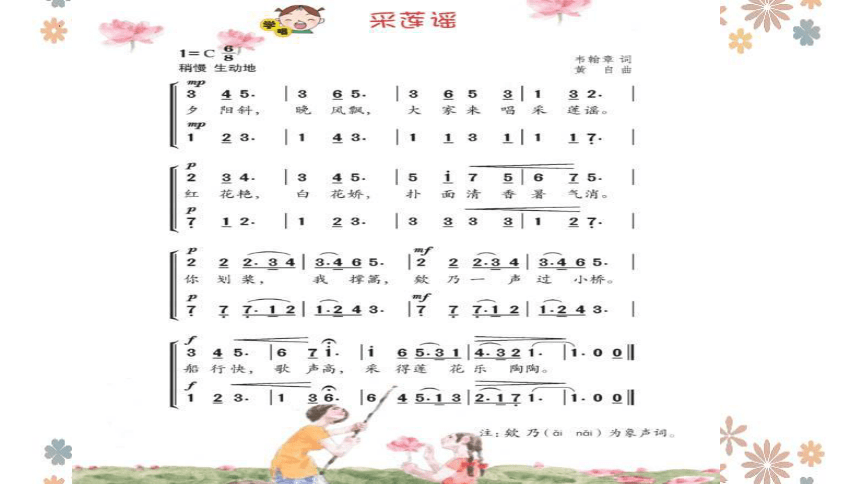 学唱
采莲谣
1=C 6/8
稍慢 生动地
韦翰章 词
黄 自 曲
mp
3 4 5· | 3 6 5· | 3 6 5 3 | 1 3 2· |
夕 阳斜, 晚 风飘, 大 家来 唱 采 莲谣。
mp
1 2 3· | 1 4 3· | 1 1 3 1 | 1 1 7· |
p
2 3 4· | 3 4 5· | 5 i 7 5 | 6 7 5· |
红 花艳, 白 花娇, 扑 面清 香 暑 气消。
p
7 1 2· | 1 2 3· | 3 3 3 3 | 1 2 7· |
p mf
2 2 2· 3 4 | 3·4 6 5· | 2 2 2·3 4 | 3·4 6 5· |
你 划桨, 我 撑篙, 欸 乃一 声过 小桥。
p mf
7 7 7· 1 2 | 1·2 4 3· | 7 7 7·1 2 | 1·2 4 3· |
f
3 4 5· | 6 7 i· | i 6 5·3 1 | 4·3 2 1· | 1· 0 0 ‖
船 行快, 歌 声高, 采 得莲 花乐 陶陶。
f
1 2 3· | 1 3 6· | 6 4 5·1 3 | 2·1 7 1· | 1· 0 0 ‖
注:欸 乃(ǎi nǎi)为象声词。